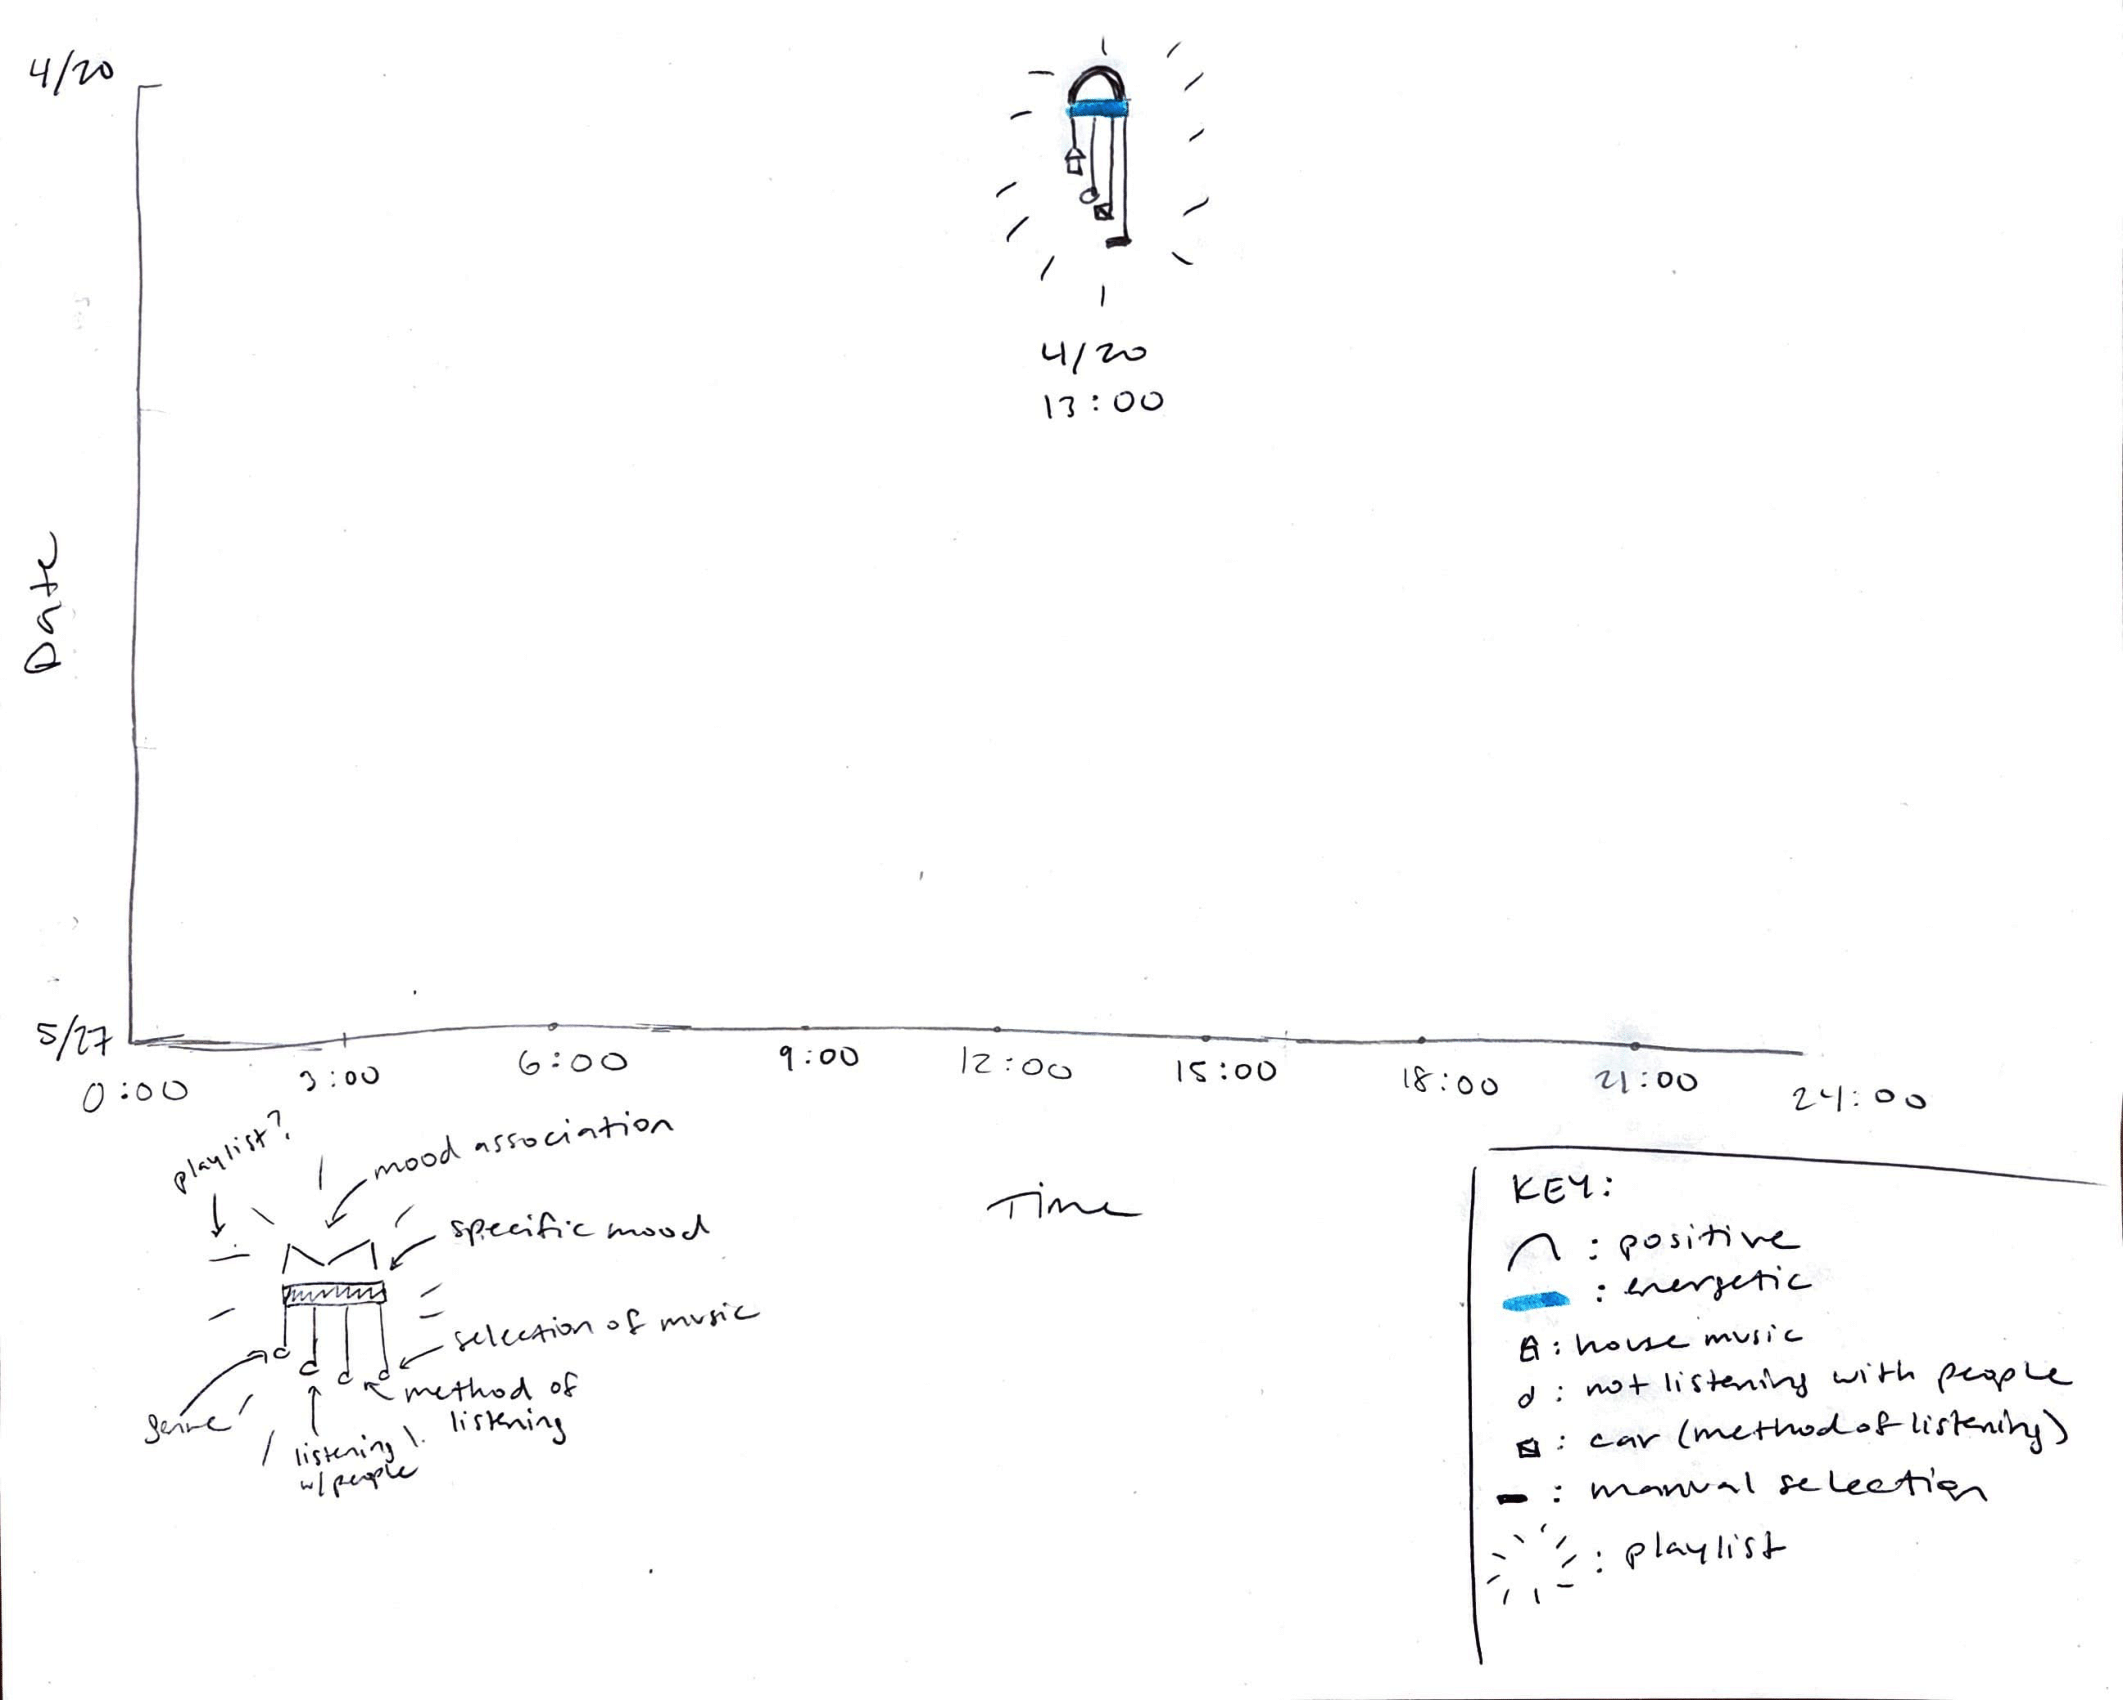 4/20
4/20
13:00
Date
5/27
0:00
3:00
6:00
9:00
12:00
15:00
18:00
21:00
24:00
Time
playlist?
mood association
specific mood
selection of music
method of
listening
genre
listening
w/people
KEY:
: positive
: energetic
: house music
: not listening with people
: car (method of listening)
: manual selection
: playlist